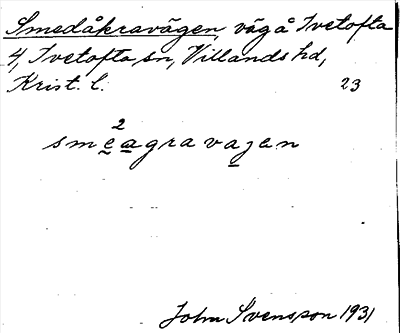 Smedåkravägen, väg å Ivetofta
4, Ivetofta sn, Villands hd,
Krist. l. 23
2
smeagravagen
John Svensson 1931